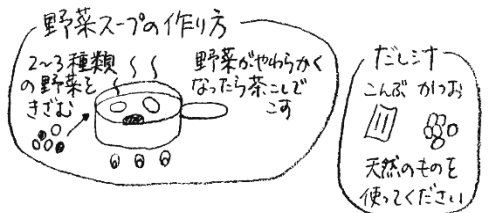 野菜スープの作り方
2〜3種類
の野菜を
きざむ
野菜がやわらかく
なったら茶こしで
こす
だし汁
こんぶ かつお
天然のものを
使ってください